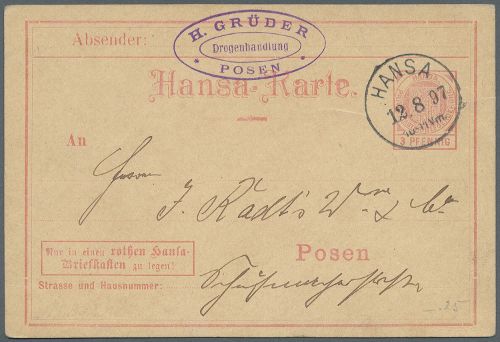 Absender:
H. GRÜDER
Drogenhandlung
* POSEN *
Hansa-Karte.
HANSA
12.8.97
10-11Vm.
3 PFENNIG
An
Herrn
J. Radt's Wwe & Co
Nur in einen rothen Hansa-
Briefkasten zu legen!
Posen
Strasse und Hausnummer:
Schuhmacherstrasse
-.25